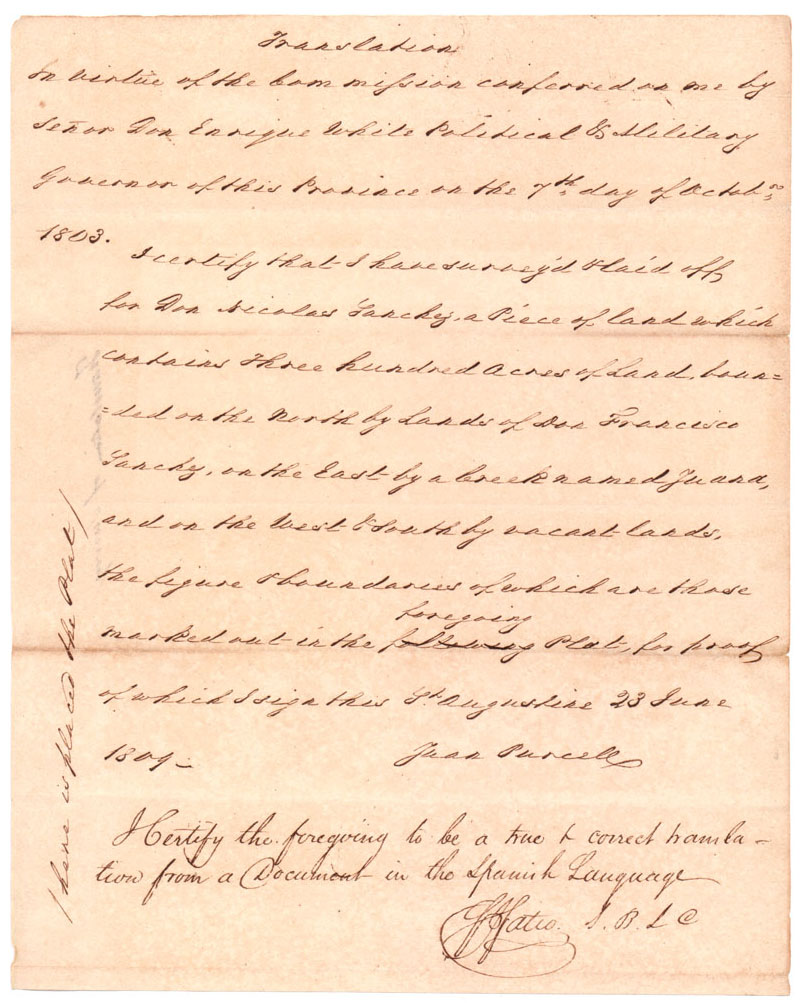 Translation
In virtue of the Commission conferred on me by
Señor Don Enrique White Political & Military
Governor of this Province on the 7th day of Octobr
1803.
I certify that I have survey'd & laid off
for Don Nicolas Sanchez, a Piece of land which
contains Three hundred Acres of Land, boun=
=ded on the North by Lands of Don Francisco
Sanchez, on the East by a Creek named Juana,
and on the West & South by vacant lands,
the figure & boundaries of which are those
foregoing
marked out in the following Plat, for proof
of which I sign this St Augustine 23 June
1809 -
Juan Purcell
I Certify the foregoing to be a true & correct transla-
tion from a Document in the Spanish Language
F J Fatio. S. B. L C
/ here is placed the Plat /